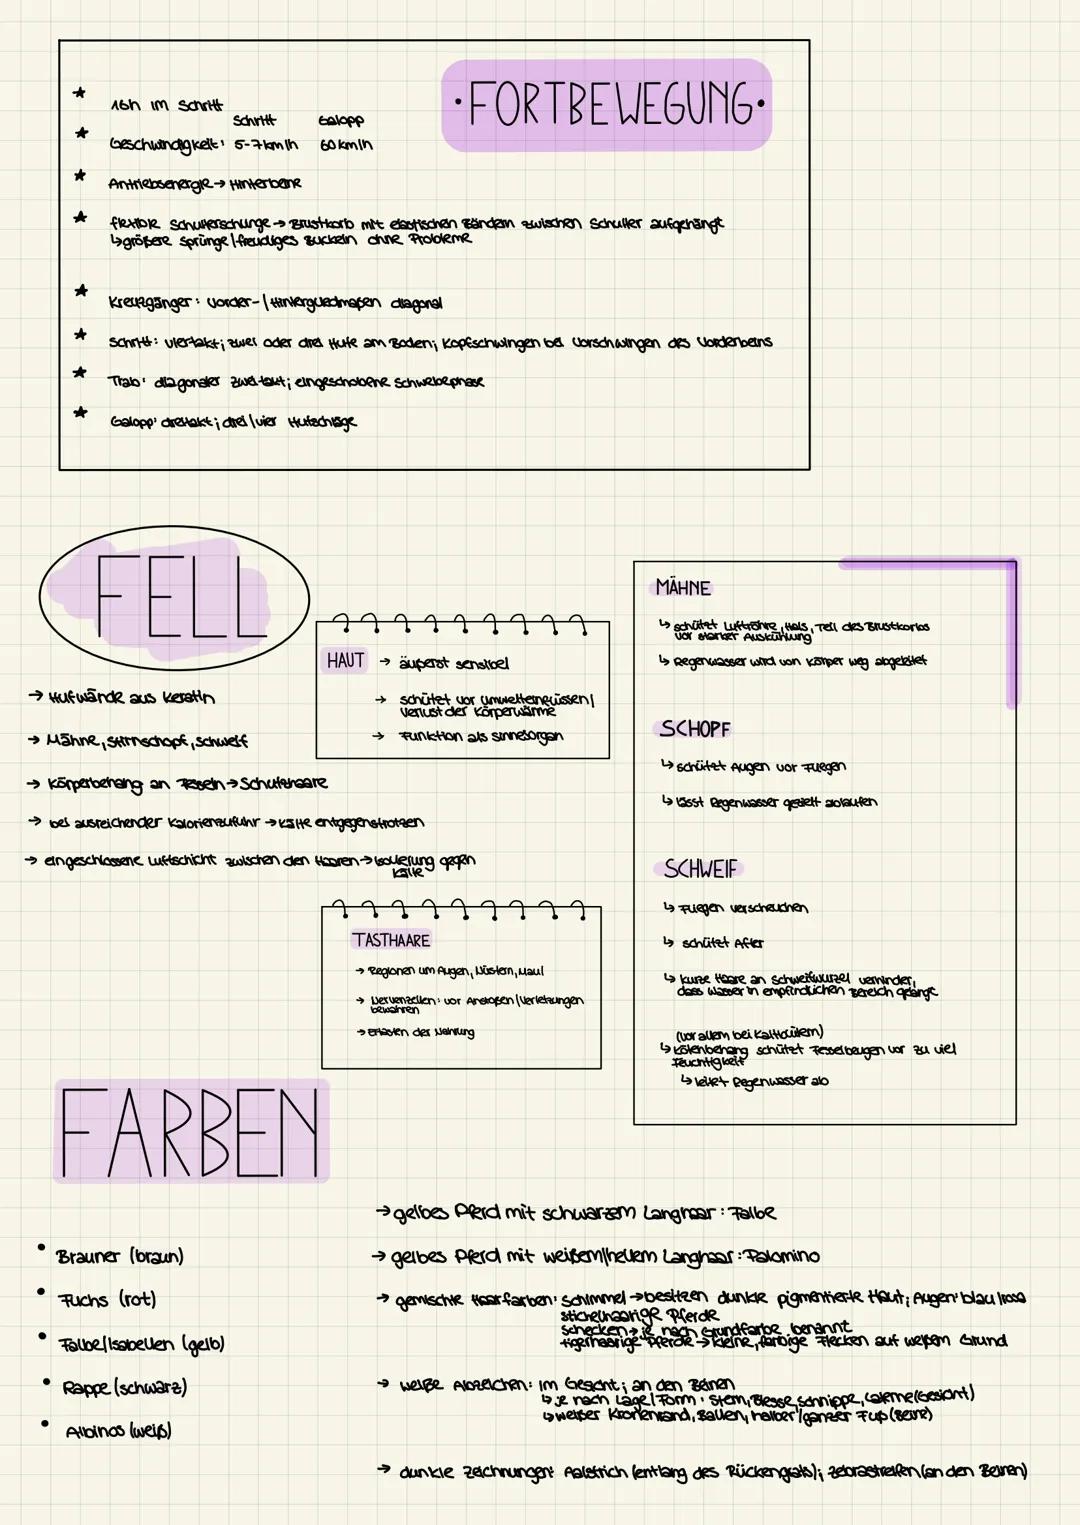 ·FORTBEWEGUNG·
16h im Schritt
Schritt Galopp
Geschwindigkeit: 5-7km/h 60km/h
Antriebsenergie → Hinterbeine
flexible Schulterschlinge → Brustkorb mit elastischen Bändern zwischen Schulter aufgehängt
↳ größere Sprünge/freudiges Buckeln ohne Probleme
Kreuzgänger: Vorder-/Hintergliedmaßen diagonal
Schritt: Viertakt; zwei oder drei Hufe am Boden; Kopfschwingen bei Vorschwingen des Vorderbeins
Trab: diagonaler Zweitakt; eingeschobene Schwebephase
Galopp: dreitakt; drei/vier Hufschläge
FELL
→ Hufwände aus Keratin
→ Mähne, Stirnschopf, Schweif
→ Körperbehang an Fesseln → Schutzhaare
→ bei ausreichender Kalorienzufuhr → Kälte entgegenstrotzen
→ eingeschlossene Luftschicht zwischen den Haaren → Isolierung gegen
Kälte
HAUT → äußerst sensibel
→ schützt vor Umwelteinflüssen/
Verlust der Körperwärme
→ Funktion als Sinnesorgan
TASTHAARE
→ Regionen um Augen, Nüstern, Maul
→ Nervenzellen: vor Anstoßen/Verletzungen
bewahren
→ Ertasten der Nahrung
MÄHNE
↳ schützt Luftröhre, Hals, Teil des Brustkorbs
vor starker Auskühlung
↳ Regenwasser wird von Körper weg abgeleitet
SCHOPF
↳ schützt Augen vor Fliegen
↳ lässt Regenwasser gezielt ablaufen
SCHWEIF
↳ Fliegen verscheuchen
↳ schützt After
↳ kurze Haare an Schweifwurzel verhindern,
dass Wasser in empfindlichen Bereich gelangt
(vor allem bei Kaltblütern)
↳ Kötenbehang schützt Fesselbeugen vor zu viel
Feuchtigkeit
↳ leitet Regenwasser ab
FARBEN
• Brauner (braun)
• Fuchs (rot)
• Falbe/Isabellen (gelb)
• Rappe (schwarz)
• Albinos (weiß)
→ gelbes Pferd mit schwarzem Langhaar: Falbe
→ gelbes Pferd mit weißem/hellem Langhaar: Palomino
→ gemischte Haarfarben: Schimmel → besitzen dunkle pigmentierte Haut; Augen: blau/rosa
stichelhaarige Pferde
Schecken → je nach Grundfarbe benannt
tigerhaarige Pferde → kleine, farbige Flecken auf weißem Grund
→ weiße Abzeichen: im Gesicht; an den Beinen
↳ je nach Lage/Form: Stern, Blesse, Schnippe, Laterne (Gesicht)
↳ weißer Kronenrand, Ballen, halber/ganzer Fuß (Beine)
→ dunkle Zeichnungen: Aalstrich (entlang des Rückengrats); Zebrastreifen (an den Beinen)